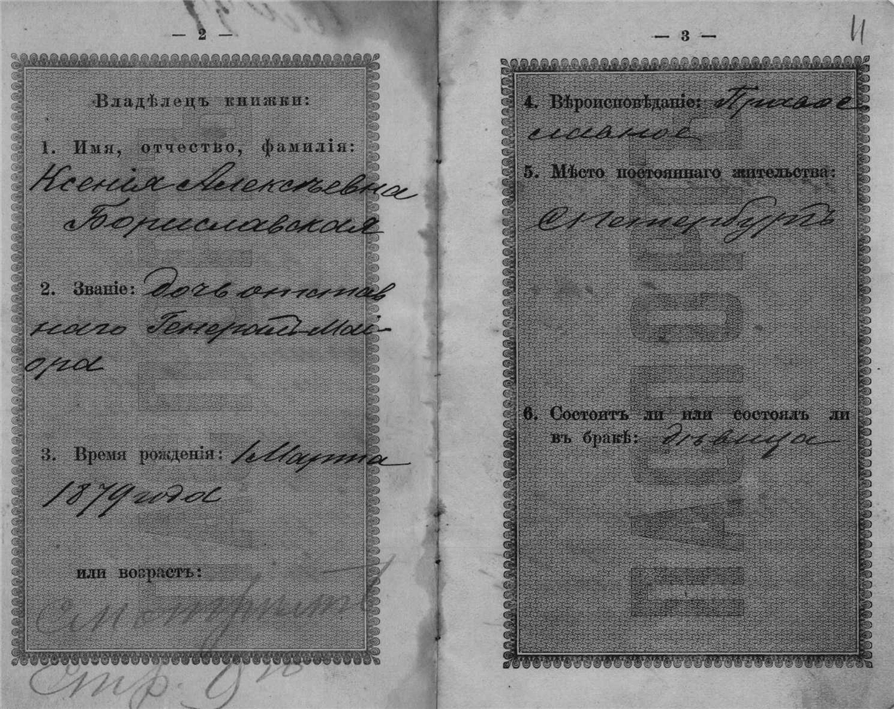 — 2 —
Владѣлецъ книжки:
1. Имя, отчество, фамилія:
Ксенія Алексѣевна
Бориславская
2. Званіе: дочь отстав
наго Генералъ-Маі-
ора
3. Время рожденія: 1 Марта
1879 года
или возрастъ:
Смотрить
Стр. 9
— 3 —
11
4. Вѣроисповѣданіе: Право
славное
5. Мѣсто постояннаго жительства:
СПетербургъ
6. Состоитъ ли или состоялъ ли
въ бракѣ: дѣвица
ПАСПОРТЪ